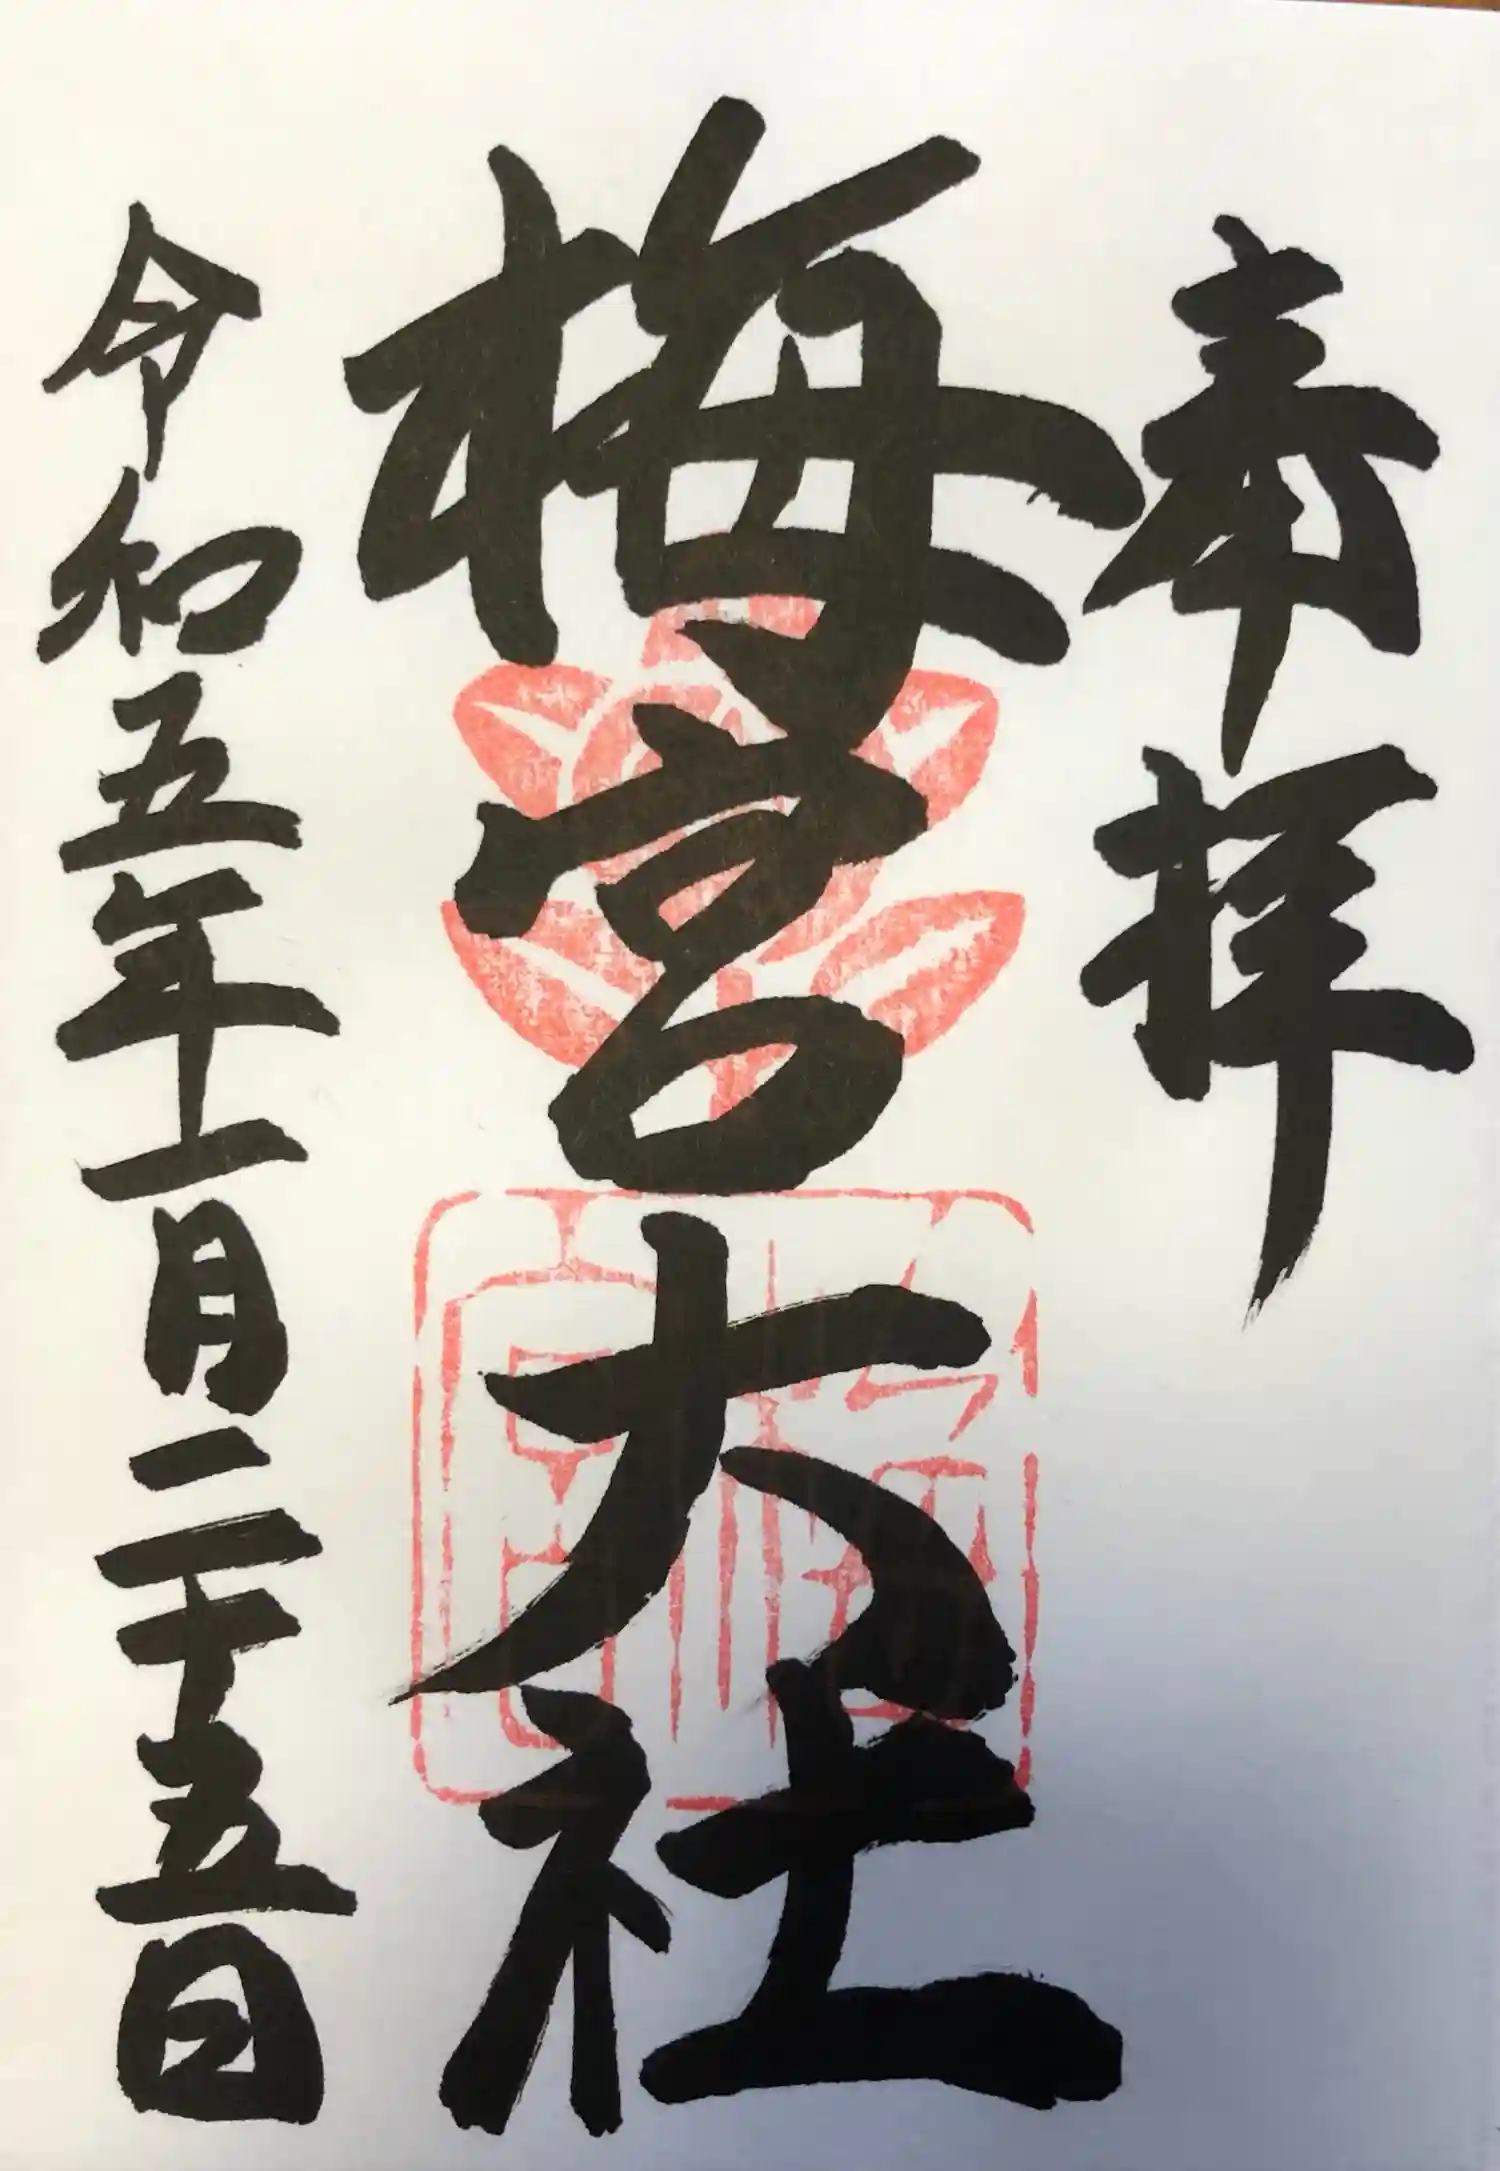 奉拝
梅宮大社
令和五年一月二十五日